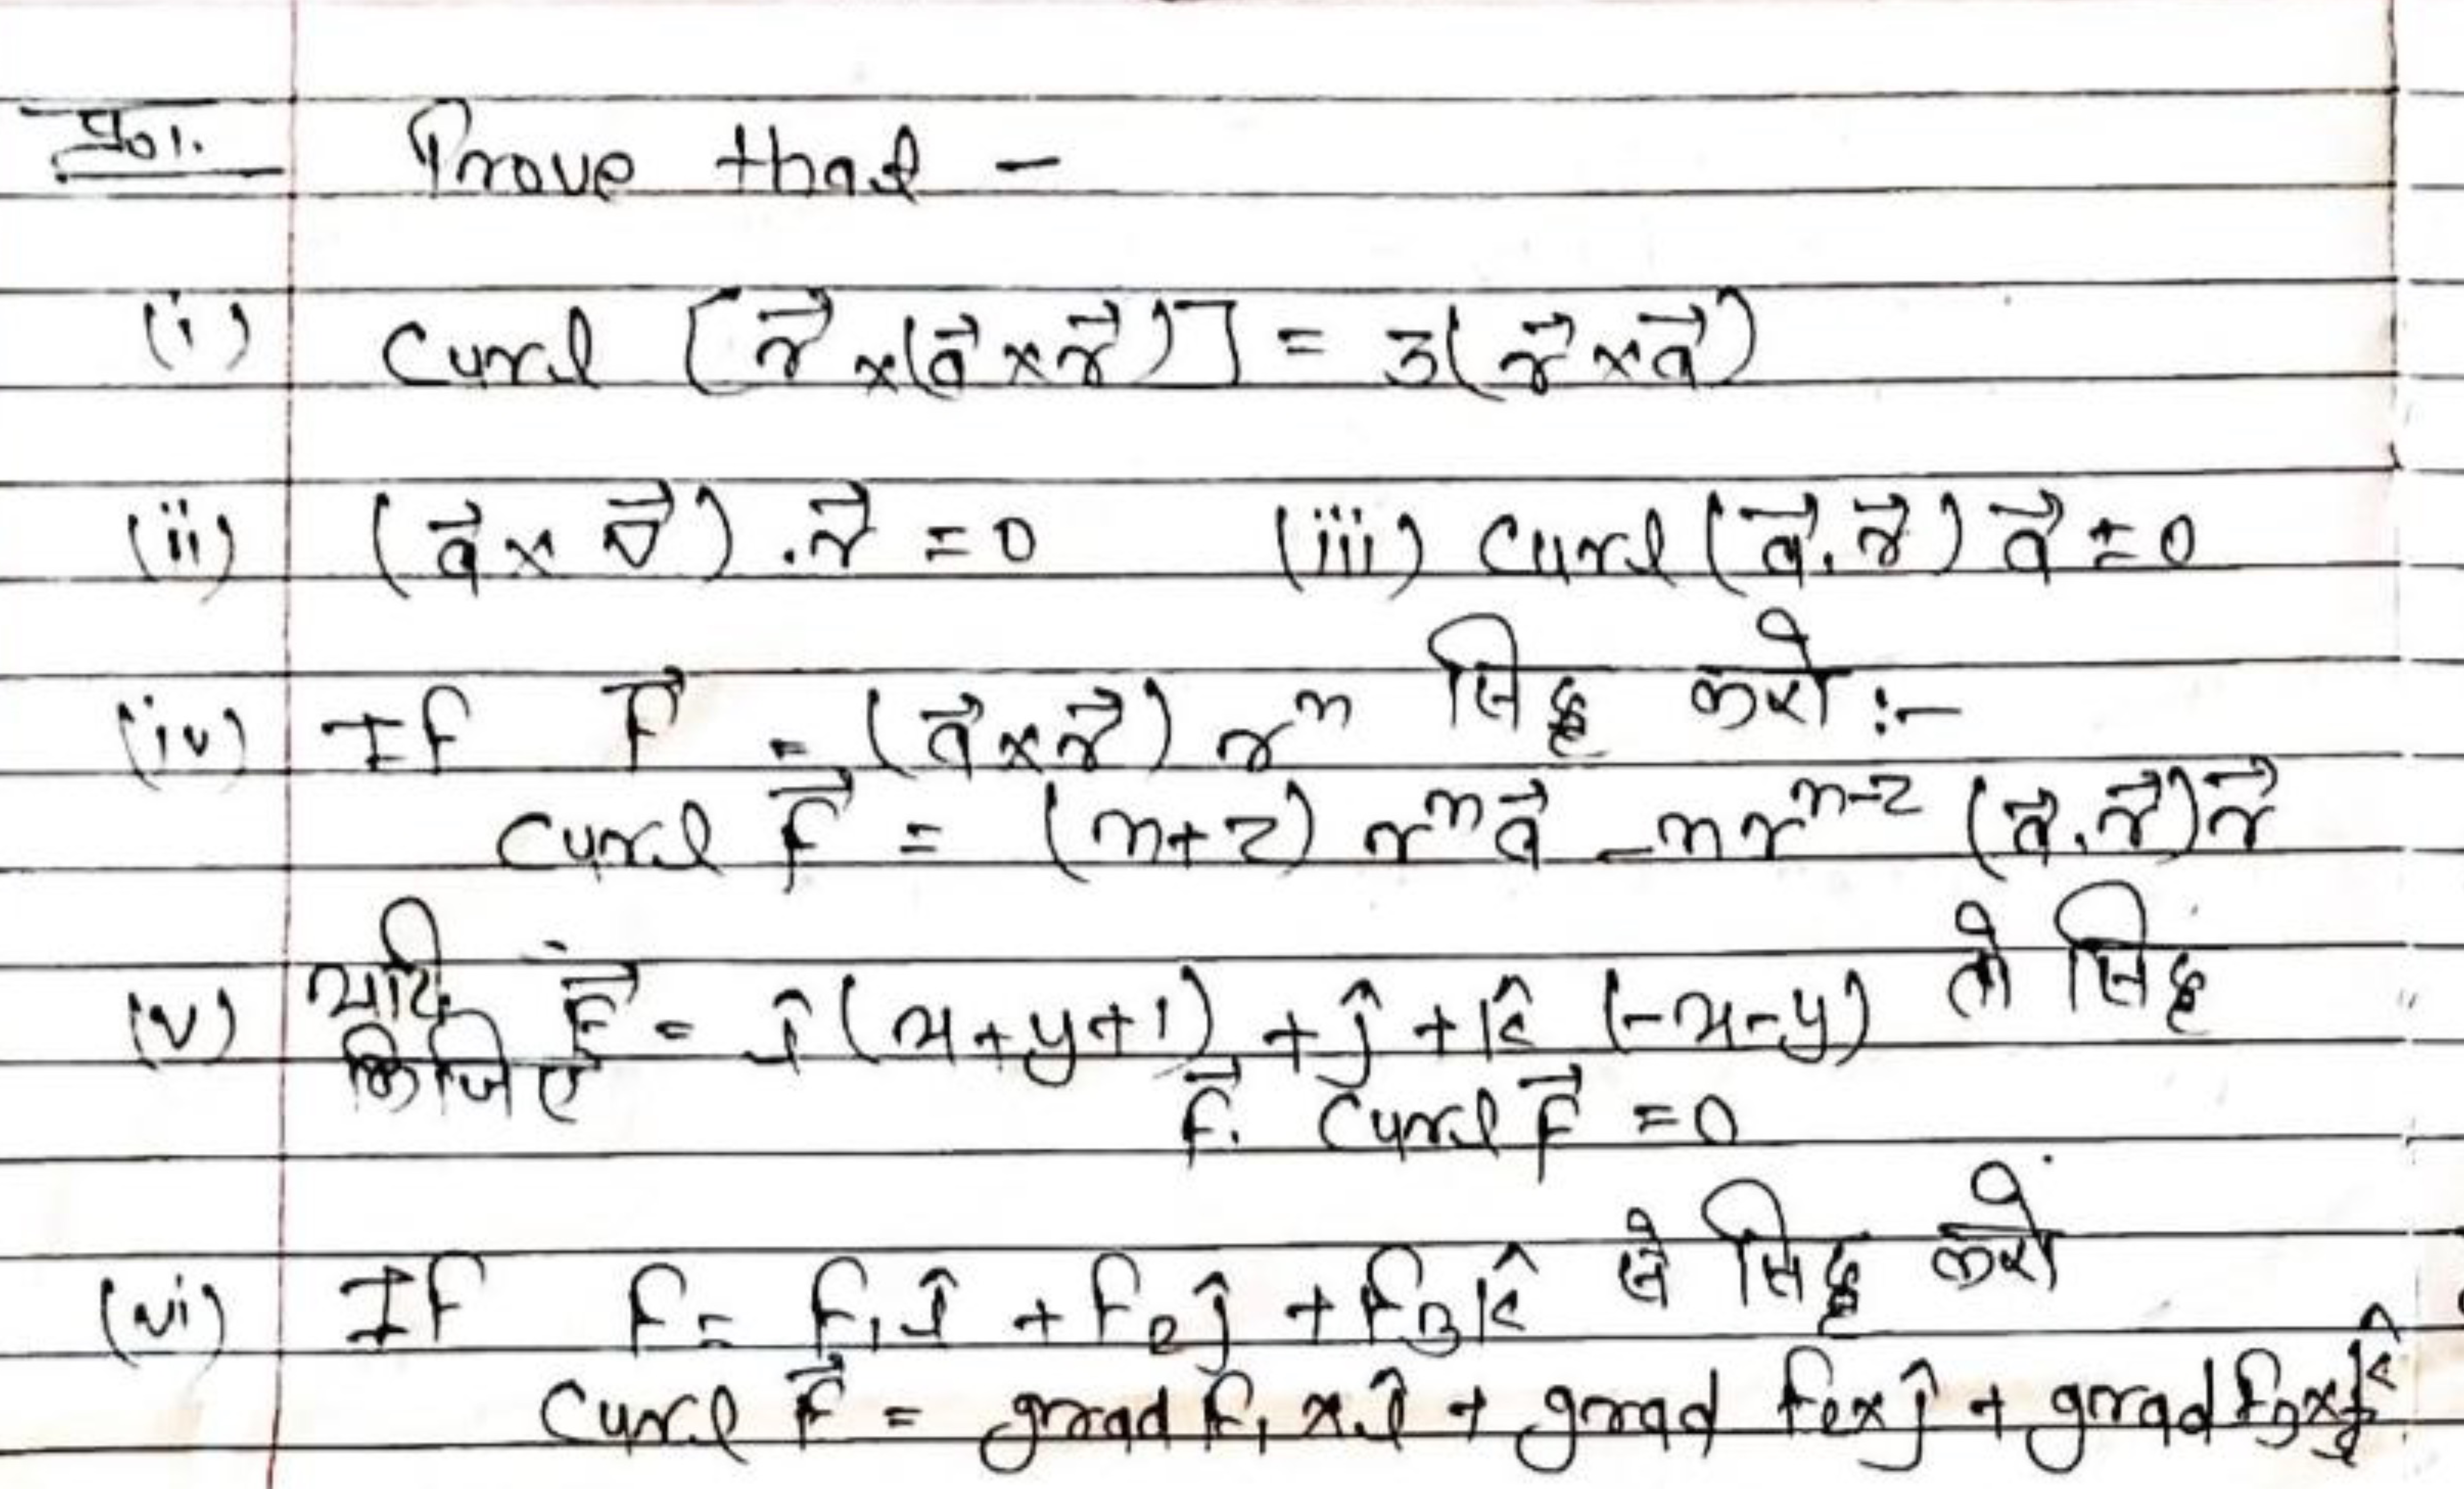 प्र01. Prove that -
(i) Curl [r⃗ ×(a⃗ × r⃗)] = 3(r⃗ × a⃗)
(ii) (a⃗ × ∇⃗) . r⃗ = 0 (iii) Curl (a⃗. r⃗) a⃗ = 0
(iv) If F⃗ = (a⃗ × r⃗) rⁿ सिद्ध करो :-
Curl F⃗ = (n+2) rⁿ a⃗ - n rⁿ⁻² (a⃗. r⃗) r⃗
(v) यदि F⃗ = î (x+y+1) + ĵ + k̂ (-x-y) तो सिद्ध
किजिए F⃗. Curl F⃗ = 0
(vi) If F = F₁ î + F₂ ĵ + F₃ k̂ से सिद्ध करो
Curl F⃗ = grad F₁ × î + grad F₂ × ĵ + grad F₃ × k̂